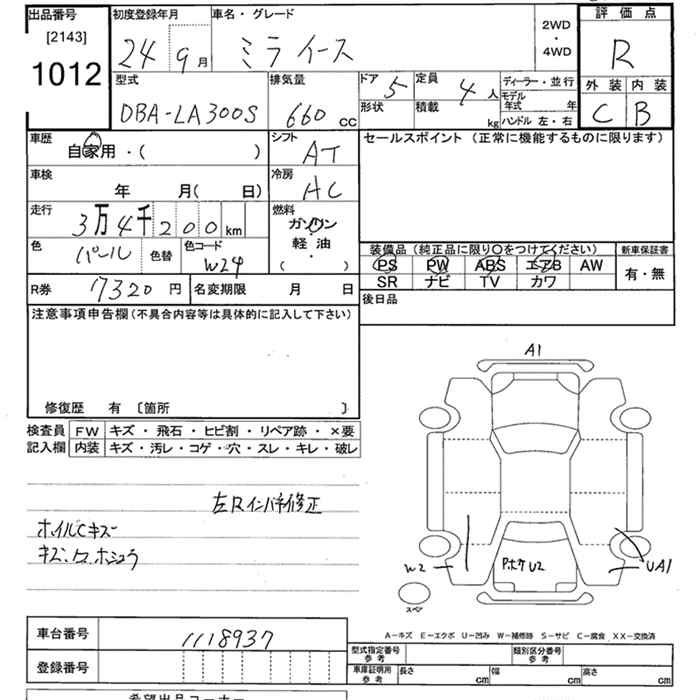 出品番号 初度登録年月 車名・グレード 評価点
[2143] 1012 24 9月 ミライース 2WD・4WD R
型式 排気量 ドア 5 定員 4人 ディーラー・並行 外装 内装
DBA-LA300S 660cc 形状 積載 kg モデル年式 年 ハンドル 左・右 C B
車歴 自家用・( ) シフト AT セールスポイント (正常に機能するものに限ります)
車検 年 月( 日) 冷房 AC
走行 3万4千200km 燃料 ガソリン
軽油
・
( )
色 パール 色替 色コード W24
装備品(純正品に限り○をつけてください) 新車保証書
PS PW ABS エアB AW 有・無
SR ナビ TV カワ
R券 7320円 名変期限 月 日 後日品
注意事項申告欄(不具合内容等は具体的に記入して下さい)
修復歴 有 〔箇所 〕
検査員 FW キズ・飛石・ヒビ割・リペア跡・×要
記入欄 内装 キズ・汚レ・コゲ・穴・スレ・キレ・破レ
A1
左Rインパネ修正
ホイルCキズ
W2 UA1
スペア
A-キズ E-エクボ U-凹み W-補修跡 S-サビ C-腐食 XX-交換済
車台番号 1118937 型式指定番号 参考 類別区分番号 参考
登録番号 車庫証明用 参考 長さ cm 幅 cm 高さ cm
希望出品コーナー